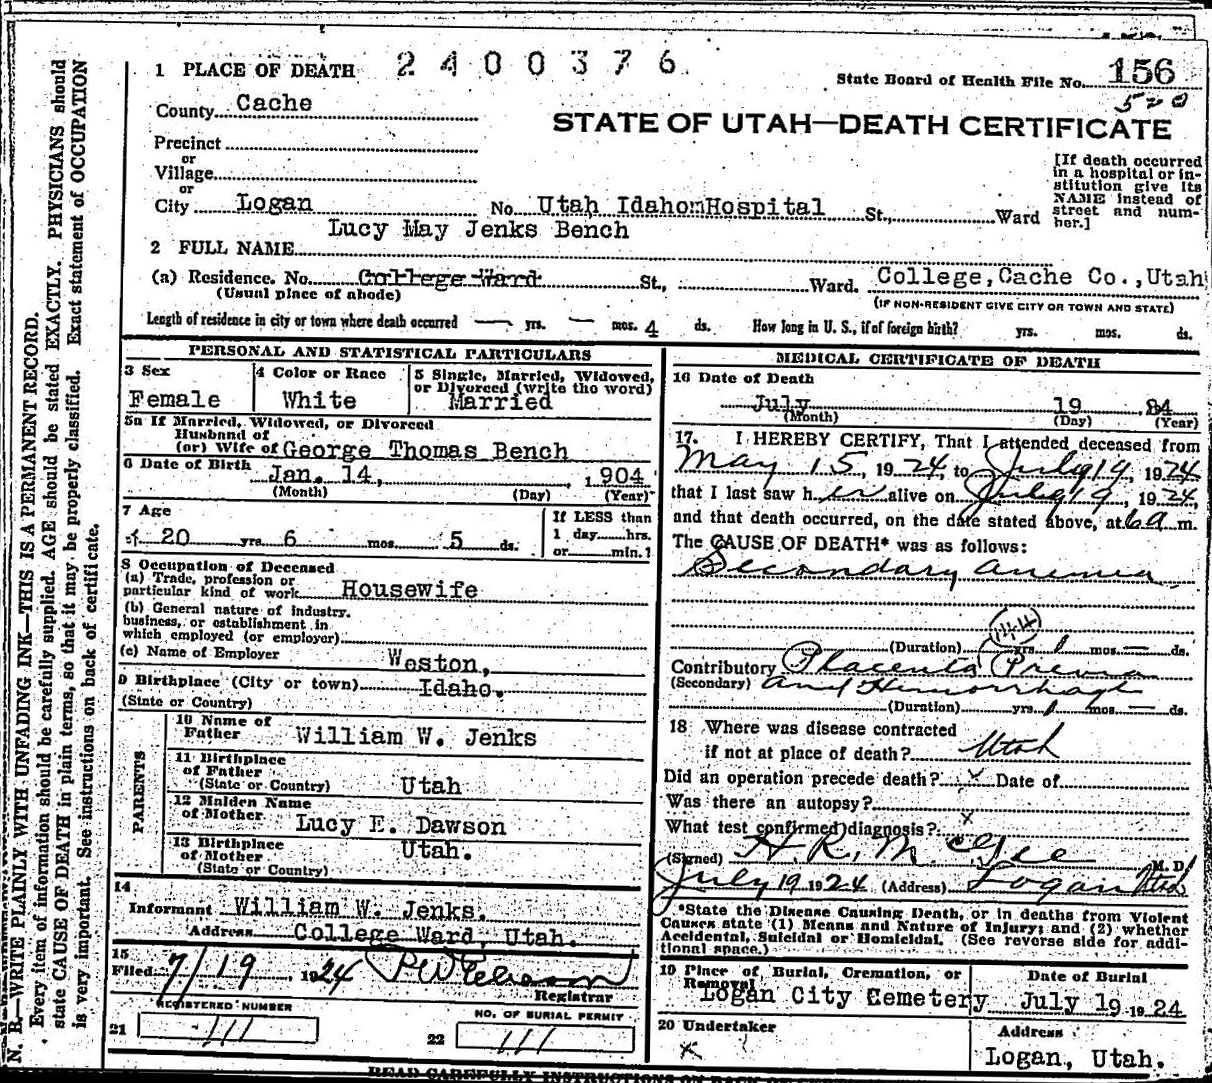 2400376
1 PLACE OF DEATH
State Board of Health File No. 156
520
County Cache
STATE OF UTAH—DEATH CERTIFICATE
Precinct
or
Village
or
City Logan No. Utah Idaho Hospital St., Ward
[If death occurred
in a hospital or in-
stitution give its
NAME instead of
street and num-
ber.]
Lucy May Jenks Bench
2 FULL NAME
(a) Residence. No. College Ward St., Ward. College, Cache Co., Utah
(Usual place of abode)
(IF NON-RESIDENT GIVE CITY OR TOWN AND STATE)
Length of residence in city or town where death occurred — yrs. — mos. 4 ds. How long in U. S., if of foreign birth? yrs. mos. ds.
PERSONAL AND STATISTICAL PARTICULARS
3 Sex
Female
4 Color or Race
White
5 Single, Married, Widowed,
or Divorced (write the word)
Married
5a If Married, Widowed, or Divorced
Husband of
(or) Wife of George Thomas Bench
6 Date of Birth
Jan. 14, 1904
(Month) (Day) (Year)
7 Age
20 yrs. 6 mos. 5 ds.
If LESS than
1 day hrs.
or min.?
8 Occupation of Deceased
(a) Trade, profession or
particular kind of work Housewife
(b) General nature of industry,
business, or establishment in
which employed (or employer)
(c) Name of Employer
Weston,
9 Birthplace (City or town) Idaho.
(State or Country)
PARENTS
10 Name of
Father William W. Jenks
11 Birthplace
of Father
(State or Country) Utah
12 Maiden Name
of Mother Lucy E. Dawson
13 Birthplace
of Mother Utah.
(State or Country)
14
Informant William W. Jenks.
Address College Ward, Utah.
15
Filed 7/19 1924
Registrar
REGISTERED NUMBER
21 111
NO. OF BURIAL PERMIT
22 111
MEDICAL CERTIFICATE OF DEATH
16 Date of Death
July 19 24
(Month) (Day) (Year)
17. I HEREBY CERTIFY, That I attended deceased from
May 15, 1924, to July 19, 1924
that I last saw her alive on July 19, 1924,
and that death occurred, on the date stated above, at 6 a m.
The CAUSE OF DEATH* was as follows:
Secondary Anemia
144
(Duration) yrs. 1 mos. — ds.
Contributory Placenta Previa
(Secondary) and Hemorrhage
(Duration) yrs. 1 mos. — ds.
18 Where was disease contracted
if not at place of death? Utah
Did an operation precede death? x Date of
Was there an autopsy?
What test confirmed diagnosis? x
(Signed) H. R. McGee M. D.
July 19 1924 (Address) Logan Utah
*State the Disease Causing Death, or in deaths from Violent
Causes state (1) Means and Nature of Injury; and (2) whether
Accidental, Suicidal or Homicidal. (See reverse side for addi-
tional space.)
19 Place of Burial, Cremation, or
Removal
Logan City Cemetery
Date of Burial
July 19 1924
20 Undertaker
x
Address
Logan, Utah.
READ CAREFULLY INSTRUCTIONS ON BACK OF
N. B.—WRITE PLAINLY WITH UNFADING INK—THIS IS A PERMANENT RECORD.
Every item of information should be carefully supplied. AGE should be stated EXACTLY. PHYSICIANS should
state CAUSE OF DEATH in plain terms, so that it may be properly classified. Exact statement of OCCUPATION
is very important. See instructions on back of certificate.